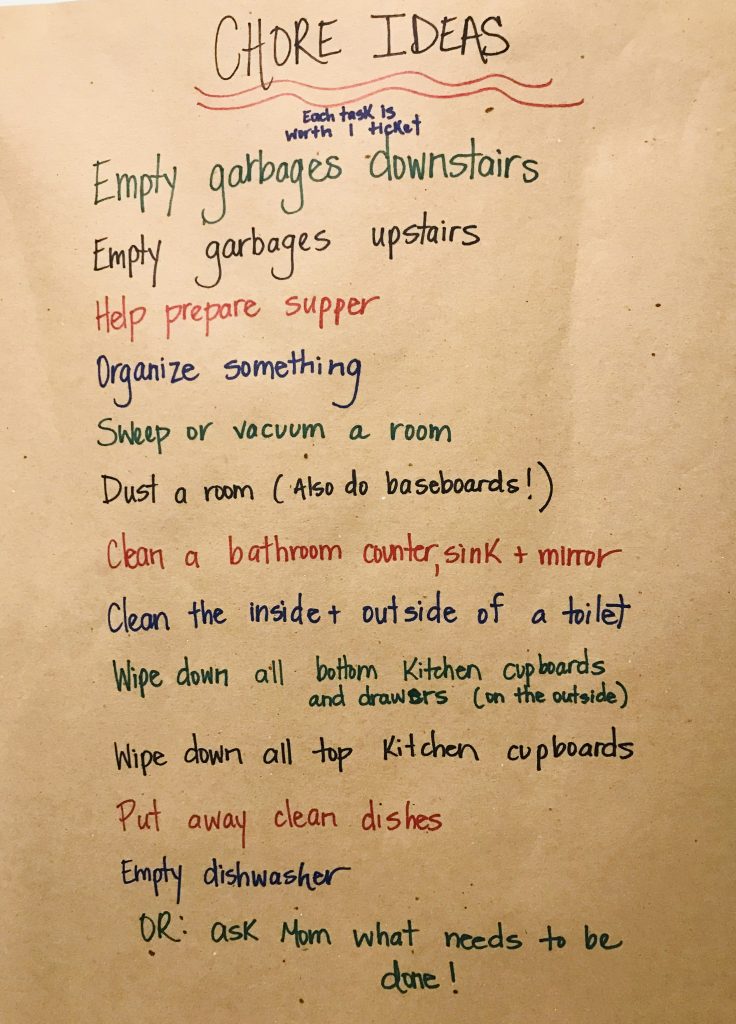 CHORE IDEAS
Each task is
worth 1 ticket
Empty garbages downstairs
Empty garbages upstairs
Help prepare supper
Organize something
Sweep or vacuum a room
Dust a room (Also do baseboards!)
Clean a bathroom counter, sink + mirror
Clean the inside + outside of a toilet
Wipe down all bottom kitchen cupboards
and drawers (on the outside)
Wipe down all top kitchen cupboards
Put away clean dishes
Empty dishwasher
OR: ask Mom what needs to be
done!